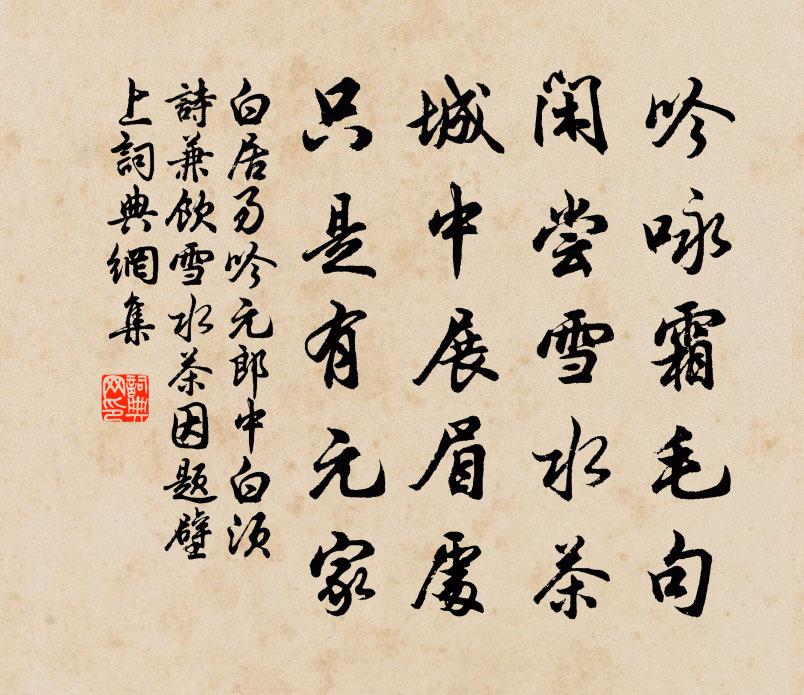 吟咏霜毛句
闲尝雪水茶
城中展眉處
只是有元家
白居易吟元郎中白须
詩兼飲雪水茶因题壁
上詞典網集
詞典网印